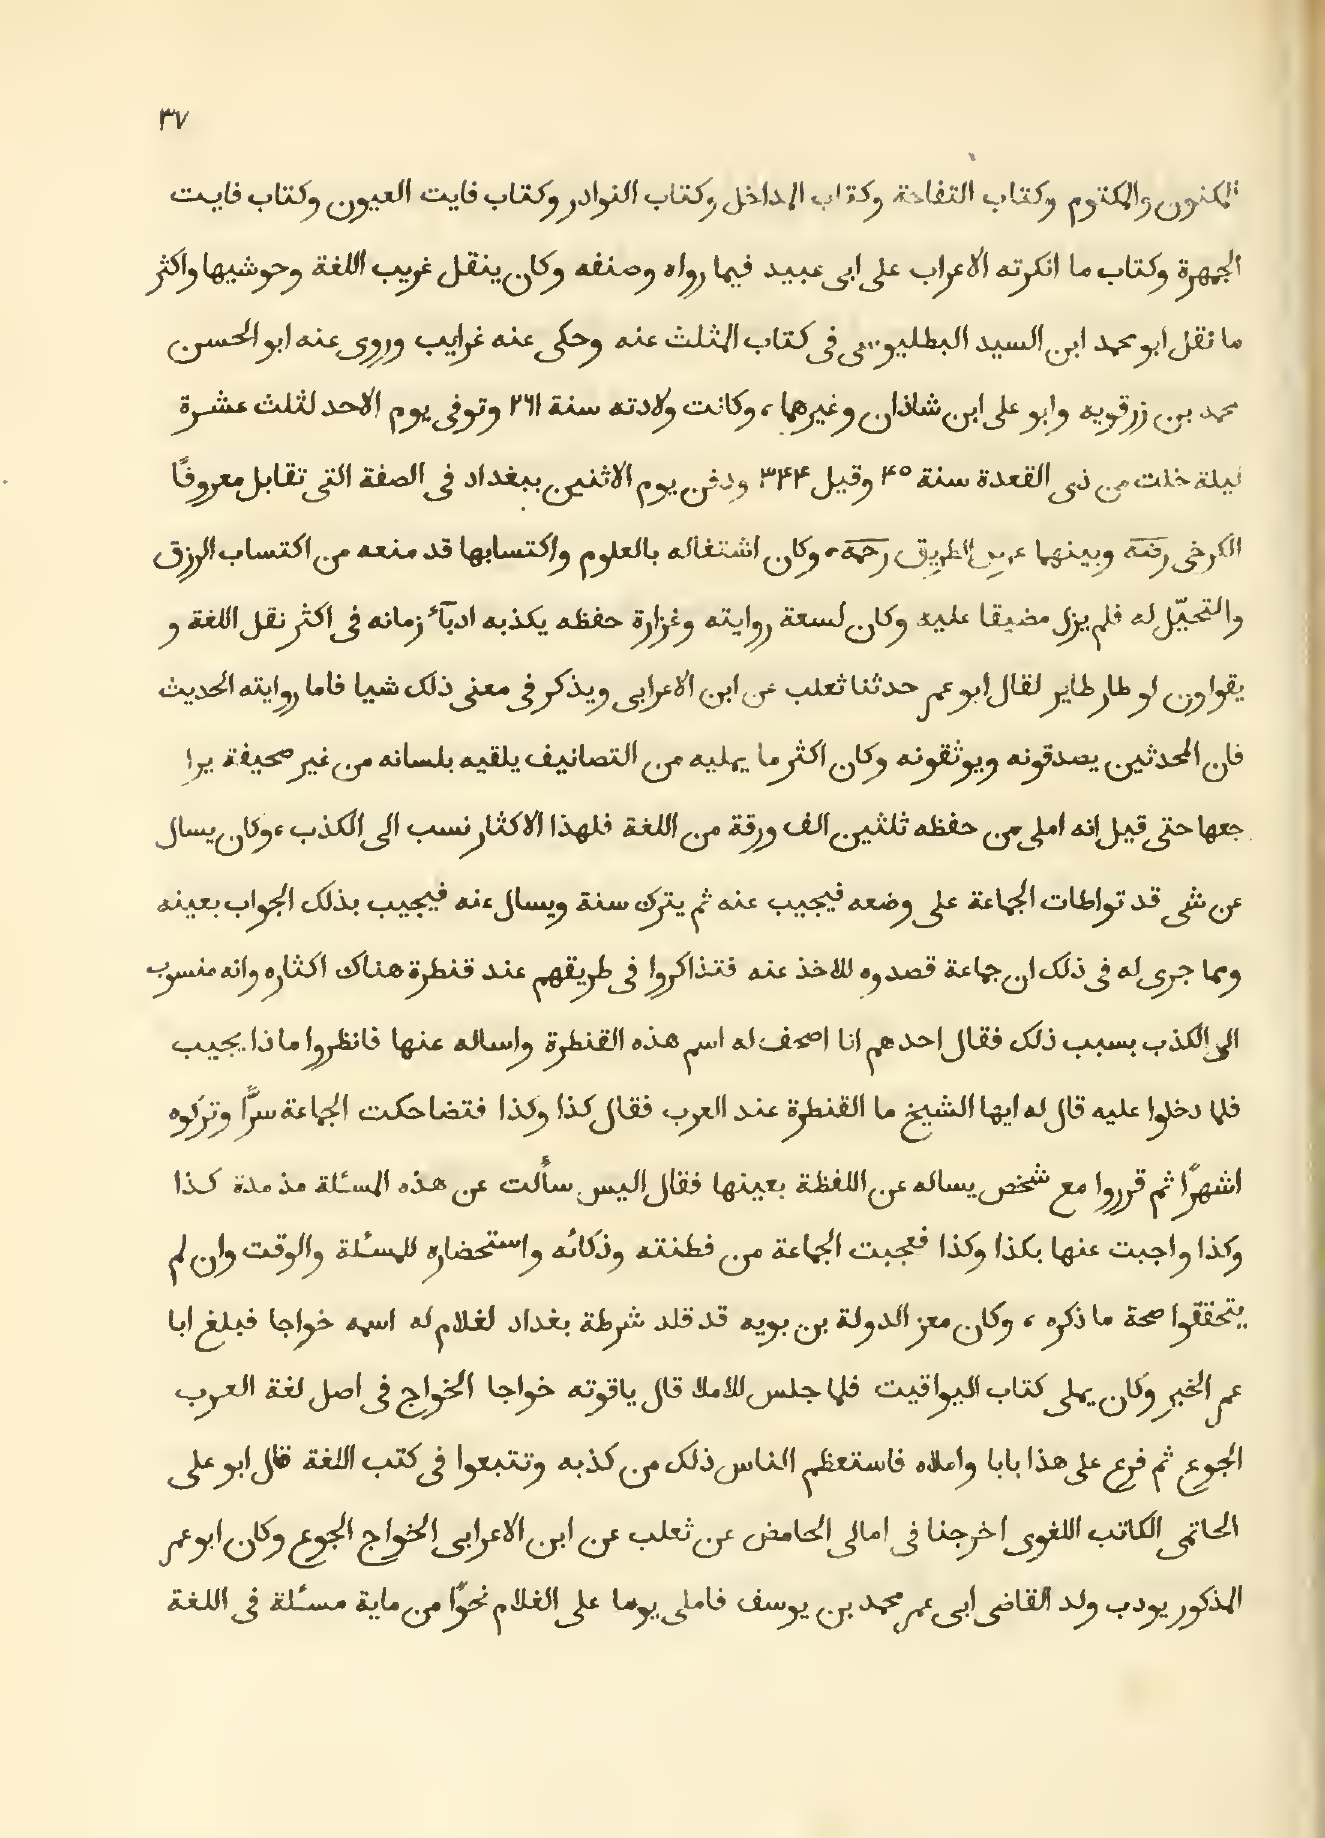 ٣٧
المكنون والمكتوم وكتاب التفاحة وكتاب المداخل وكتاب النوادر وكتاب فايت العيون وكتاب فايت
الجمهرة وكتاب ما انكرته الاعراب على ابى عبيد فيما رواه وصنفه وكان ينقل غريب اللغة وحوشيها واكثر
ما نقل ابو محمد ابن السيد البطليوسى فى كتاب المثلث عنه وحكى عنه غرايب وروى عنه ابو الحسن
محمد بن زرقويه وابو على ابن شاذان وغيرهما، وكانت ولادته سنة ٢٦١ وتوفى يوم الاحد لثلث عشرة
ليلة خلت من ذى القعدة سنة ٤٥ وقيل ٣٤٤ ودفن يوم الاثنين ببغداد فى الصفة التى تقابل معروفًا
الكرخى رضه وبينهما عرض الطريق رحمه، وكان اشتغاله بالعلوم واكتسابها قد منعه من اكتساب الرزق
والتحيّل له فلم يزل مضيقا عليه وكان لسعة روايته وغزارة حفظه يكذبه ادبآء زمانه فى اكثر نقل اللغة و
يقولون لو طار طاير لقال ابو عمر حدثنا ثعلب عن ابن الاعرابى ويذكر فى معنى ذلك شيا فاما روايته الحديث
فان المحدثين يصدقونه ويوثقونه وكان اكثر ما يمليه من التصانيف يلقيه بلسانه من غير صحيفة يرا
جعها حتى قيل انه املى من حفظه ثلثين الف ورقة من اللغة فلهذا الاكثار نسب الى الكذب، وكان يسال
عن شى قد تواطات الجماعة على وضعه فيجيب عنه ثم يترك سنة ويسال عنه فيجيب بذلك الجواب بعينه
ومما جرى له فى ذلك ان جماعة قصدوه للاخذ عنه فتذاكروا فى طريقهم عند قنطرة هناك اكثاره وانه منسوب
الى الكذب بسبب ذلك فقال احدهم انا اصحف له اسم هذه القنطرة واساله عنها فانظروا ماذا يجيب
فلما دخلوا عليه قال له ايها الشيخ ما القنطرة عند العرب فقال كذا وكذا فتضاحكت الجماعة سرًّا وتركوه
اشهرًا ثم قرروا مع شخص يساله عن اللفظة بعينها فقال اليس سألت عن هذه المسئلة مذ مدة كذا
وكذا واجبت عنها بكذا وكذا فعجبت الجماعة من فطنته وذكائه واستحضاره للمسئلة والوقت وان لم
يتحققوا صحة ما ذكره، وكان معز الدولة بن بويه قد قلد شرطة بغداد لغلام له اسمه خواجا فبلغ ابا
عمر الخبر وكان يملى كتاب اليواقيت فلما جلس للاملا قال ياقوته خواجا الخواج فى اصل لغة العرب
الجوع ثم فرع على هذا بابا واملاه فاستعظم الناس ذلك من كذبه وتتبعوا فى كتب اللغة قال ابو على
الحاتمى الكاتب اللغوى اخرجنا فى امالى الحامض عن ثعلب عن ابن الاعرابى الخواج الجوع وكان ابو عمر
المذكور يودب ولد القاضى ابى عمر محمد بن يوسف فاملى يوما على الغلام نحوًا من ماية مسئلة فى اللغة